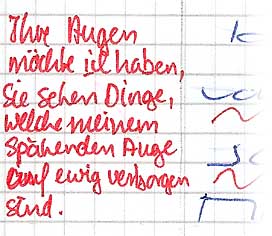 Ihre Augen
möchte ich haben,
Sie sehen Dinge,
welche meinem
spähenden Auge
auf ewig verborgen
sind.